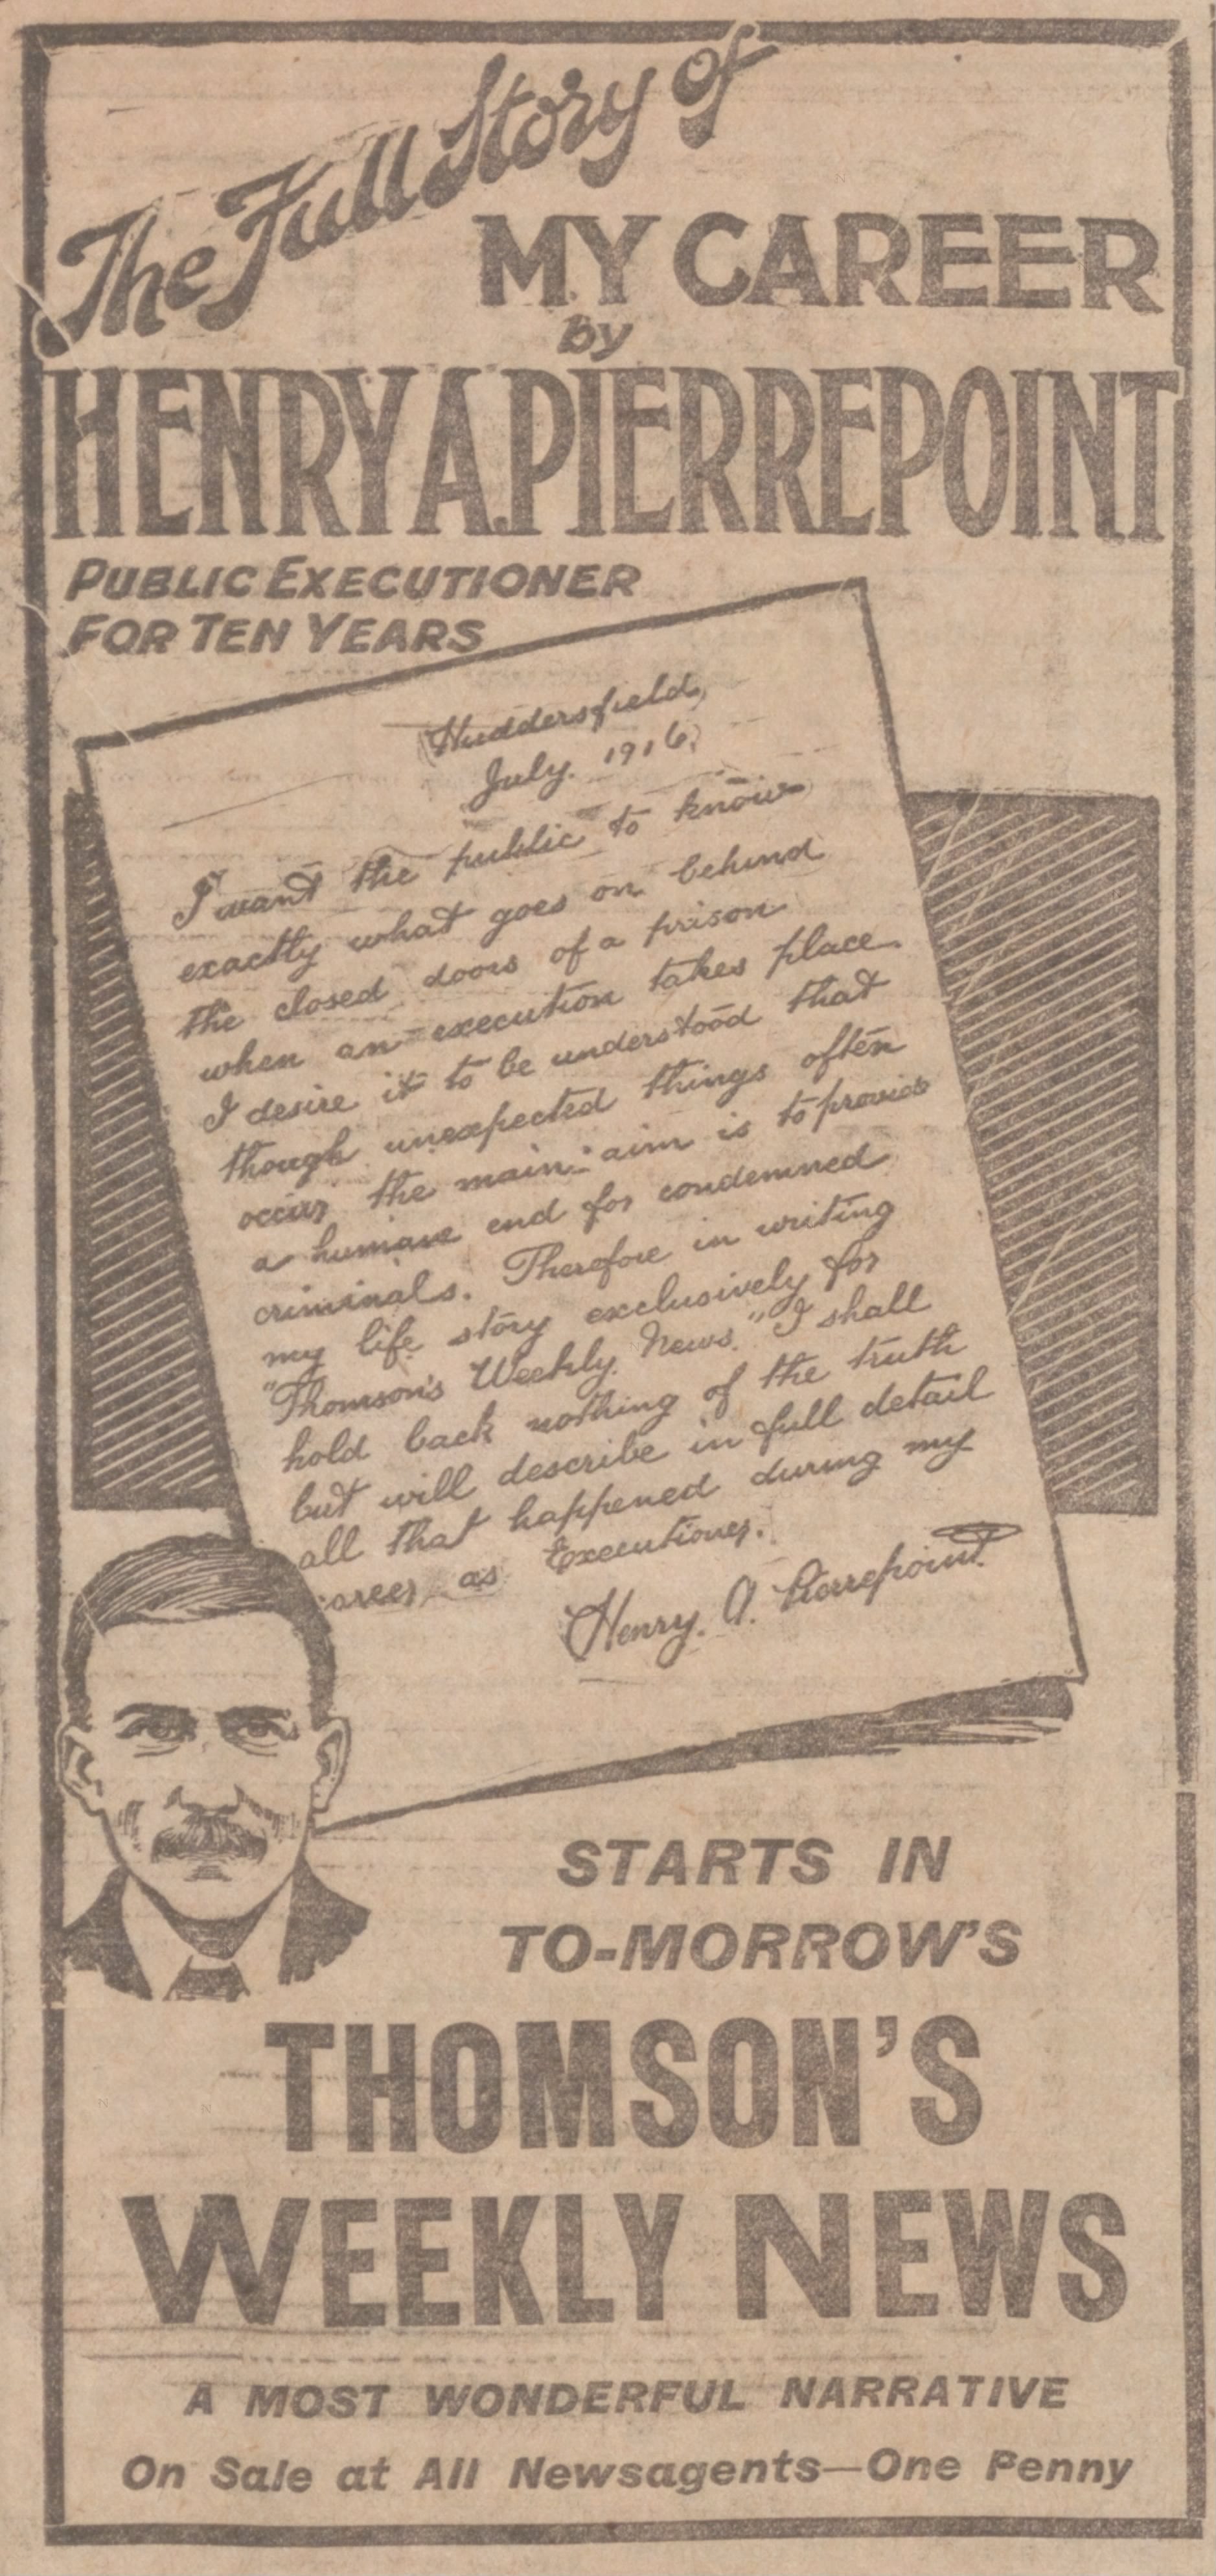 The Full Story of
MY CAREER
by
HENRY A. PIERREPOINT
PUBLIC EXECUTIONER
FOR TEN YEARS
Huddersfield,
July. 1916.
I want the public to know
exactly what goes on behind
the closed doors of a prison
when an execution takes place.
I desire it to be understood that
though unexpected things often
occur, the main aim is to provide
a humane end for condemned
criminals. Therefore in writing
my life story exclusively for
"Thomson's Weekly News." I shall
hold back nothing of the truth
but will describe in full detail
all that happened during my
career as Executioner.
Henry. A. Pierrepoint
STARTS IN
TO-MORROW'S
THOMSON'S
WEEKLY NEWS
A MOST WONDERFUL NARRATIVE
On Sale at All Newsagents—One Penny